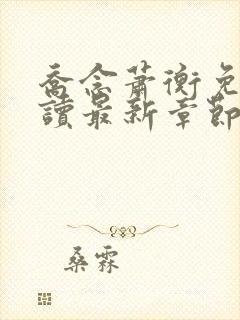 喬念蕭衡免
讀最新章節
桑霖